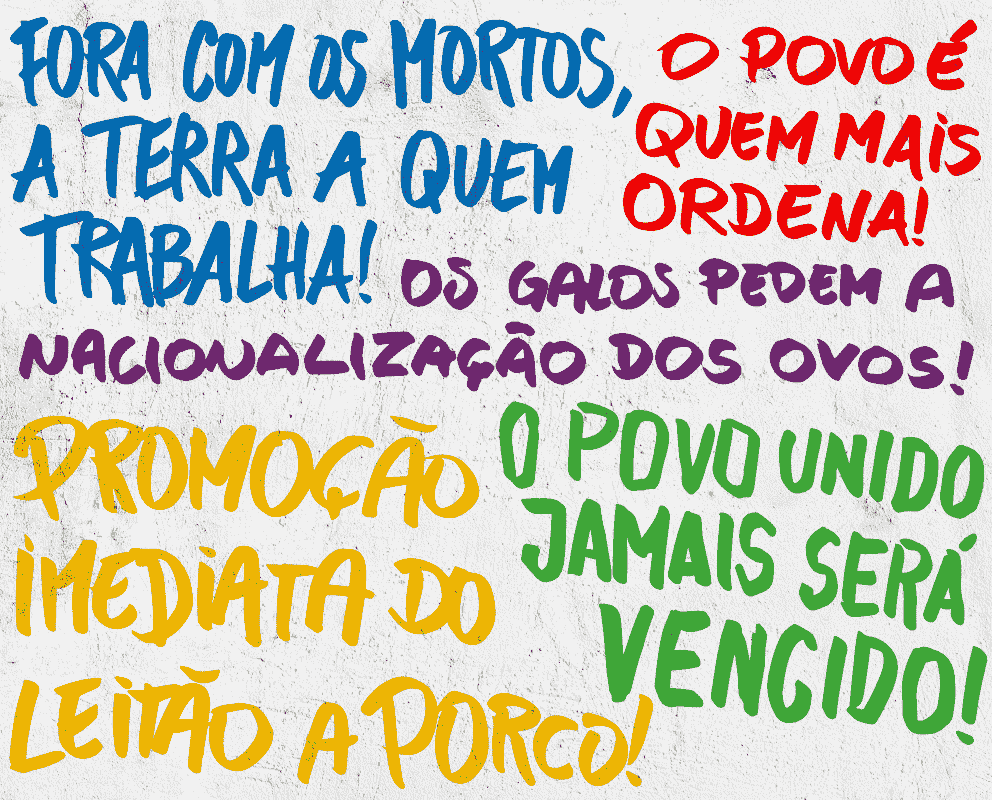 FORA COM OS MORTOS,
A TERRA A QUEM
TRABALHA!
O POVO É
QUEM MAIS
ORDENA!
OS GALOS PEDEM A
NACIONALIZAÇÃO DOS OVOS!
PROMOÇÃO
IMEDIATA DO
LEITÃO A PORCO!
O POVO UNIDO
JAMAIS SERÁ
VENCIDO!